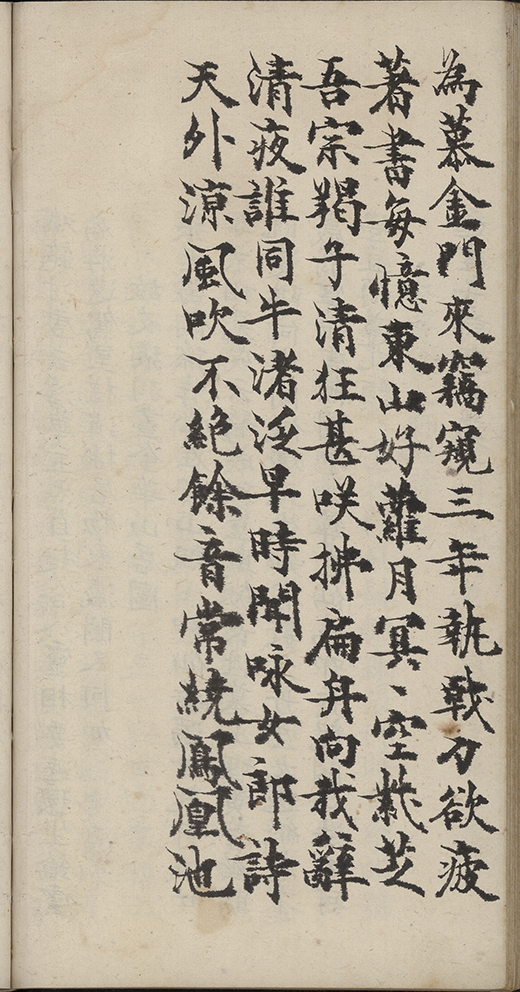 為慕金門來竊窺三年執戟力欲疲
著書每憶東山好蘿月冥〻空𦻎芝
吾宗羯子清狂甚咲拂扁舟向我辭
清夜誰同牛渚泛早時聞咏女郎詩
天外涼風吹不絕餘音常繞鳳凰池